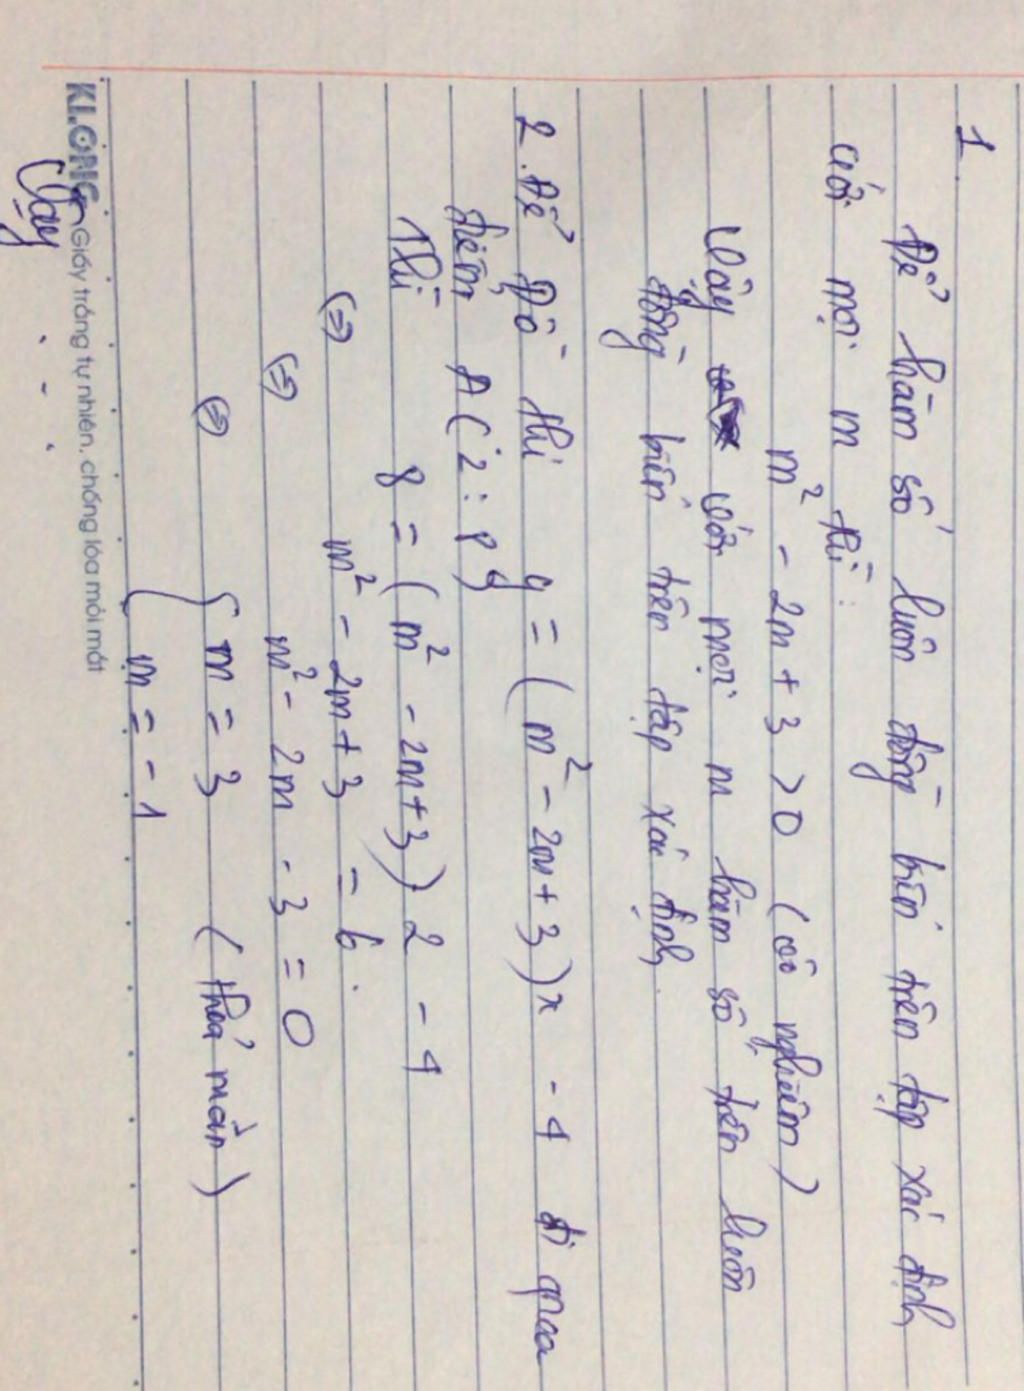 1.
Để hàm số luôn đồng biến trên tập xác định
với mọi m thì:
m² - 2m + 3 > 0 (vô nghiệm)
Vậy với mọi m hàm số trên luôn
đồng biến trên tập xác định.
2. Để Đồ thị y = (m² - 2m + 3)x - 4 đi qua
điểm A(2: 8)
Thì 8 = (m² - 2m + 3) 2 - 4
(=) m² - 2m + 3 = 6.
(=) m² - 2m - 3 = 0
(=) { m = 3 (thoả mãn)
m = -1
KLONG Giấy trắng tự nhiên, chống lóa mỏi mắt
Vậy